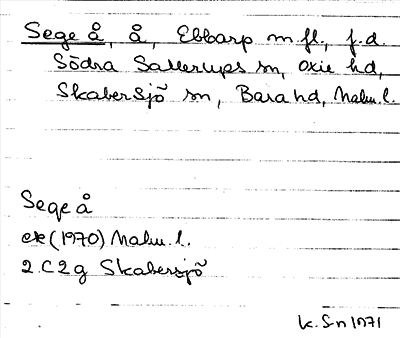 Sege å, å, Ebbarp m.fl., f.d.
Södra Sallerups sn, Oxie hd,
Skabersjö sn, Bara hd, Malm. l.
Sege å
ek (1970) Malm. l.
2.C2g Skabersjö
k. S-n 1971